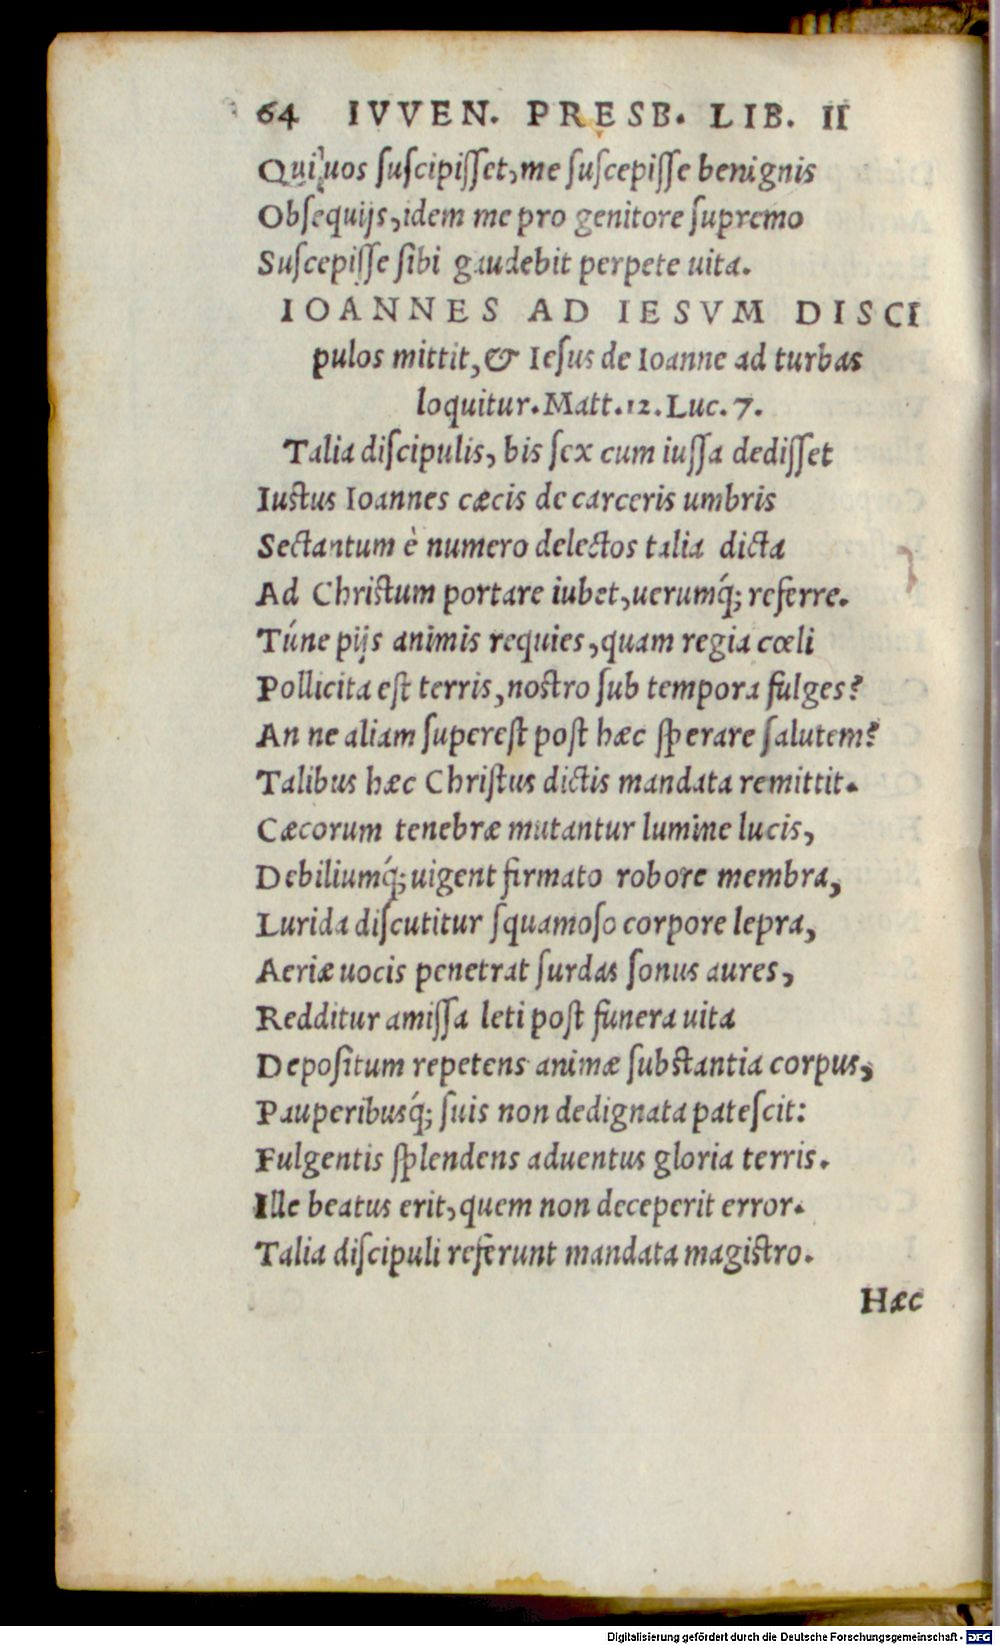 64 IVVEN. PRESB. LIB. II
Qui uos suscipisset, me suscepisse benignis
Obsequijs, idem me pro genitore supremo
Suscepisse sibi gaudebit perpete uita.
IOANNES AD IESVM DISCI
pulos mittit, & Iesus de Ioanne ad turbas
loquitur. Matt. 12. Luc. 7.
Talia discipulis, bis sex cum iussa dedisset
Iustus Ioannes cæcis de carceris umbris
Sectantum è numero delectos talia dicta
Ad Christum portare iubet, uerumq́; referre.
Túne pijs animis requies, quam regia cœli
Pollicita est terris, nostro sub tempora fulges?
An ne aliam superest post hæc sperare salutem?
Talibus hæc Christus dictis mandata remittit.
Cæcorum tenebræ mutantur lumine lucis,
Debiliumq́; uigent firmato robore membra,
Lurida discutitur squamoso corpore lepra,
Aeriæ uocis penetrat surdas sonus aures,
Redditur amissa leti post funera uita
Depositum repetens animæ substantia corpus,
Pauperibusq́; suis non dedignata patescit:
Fulgentis splendens aduentus gloria terris.
Ille beatus erit, quem non deceperit error.
Talia discipuli referunt mandata magistro.
Hæc
Digitalisierung gefördert durch die Deutsche Forschungsgemeinschaft - DFG